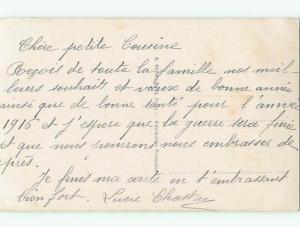 Chère petite Cousine
Reçois de toute la famille nos meil-
leurs souhait et vœux de bonne année
ainsi que de bonne santé pour l'année
1916 et j'espère que la guerre sera finie
et que nous pourrons nous embrasser de
près.
Je finis ma carte en t'embrassant
bien fort. Lucie